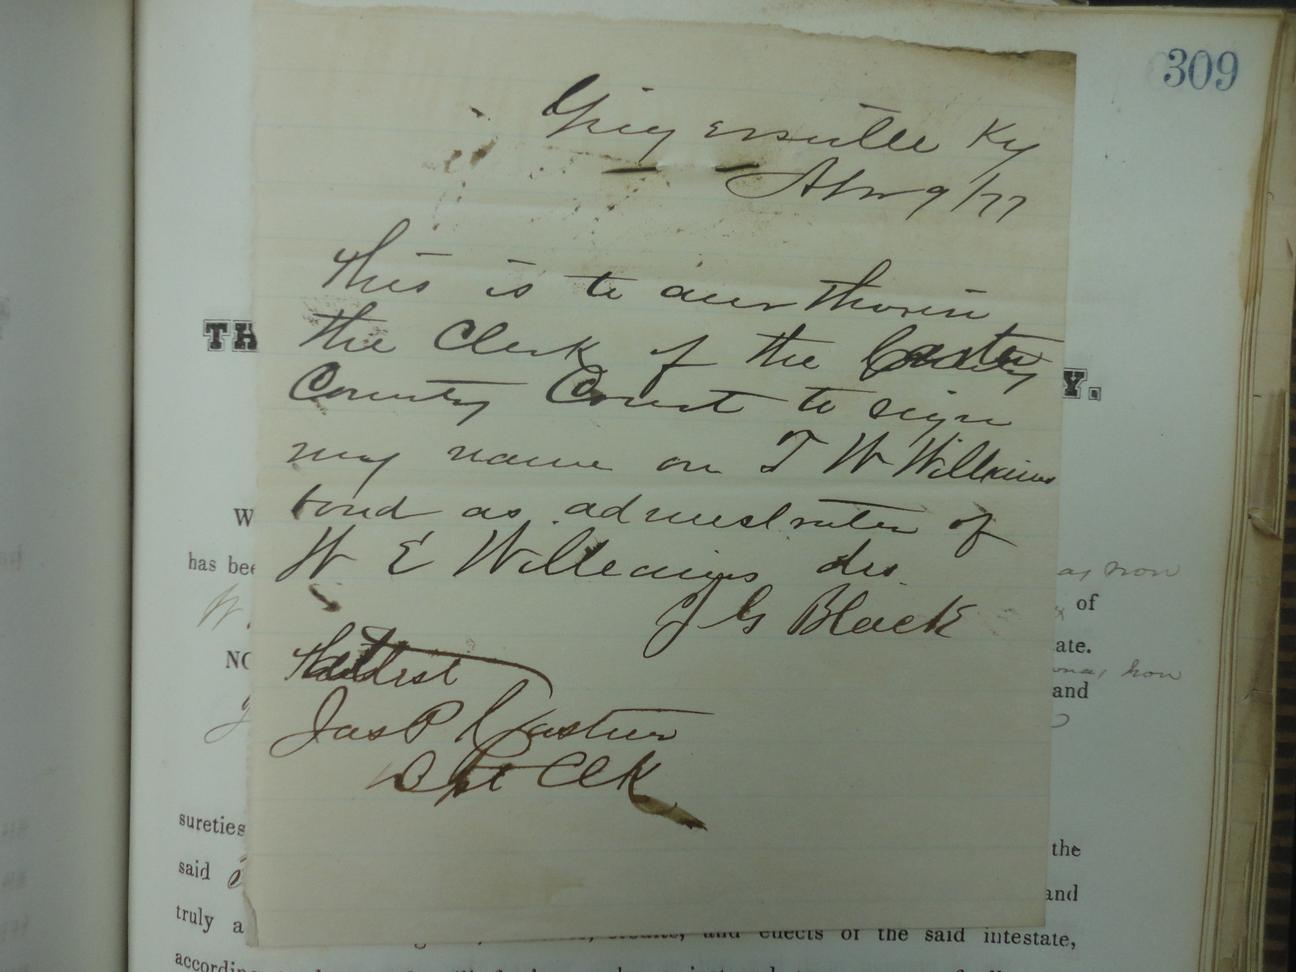 309
Grigersville Ky
Nov 9/77
this is to aur thorise
the Clerk of the Carter
County Court to sign
my name on T W Williams
bond as admistrater of
W E Williams des.
J G Black
Attest
Jas P
D Clk
TH
Y.
W
has bee
non
W.
of
ate.
NO
non
and
sureties
the
said
and
truly a
and effects of the said intestate,
according